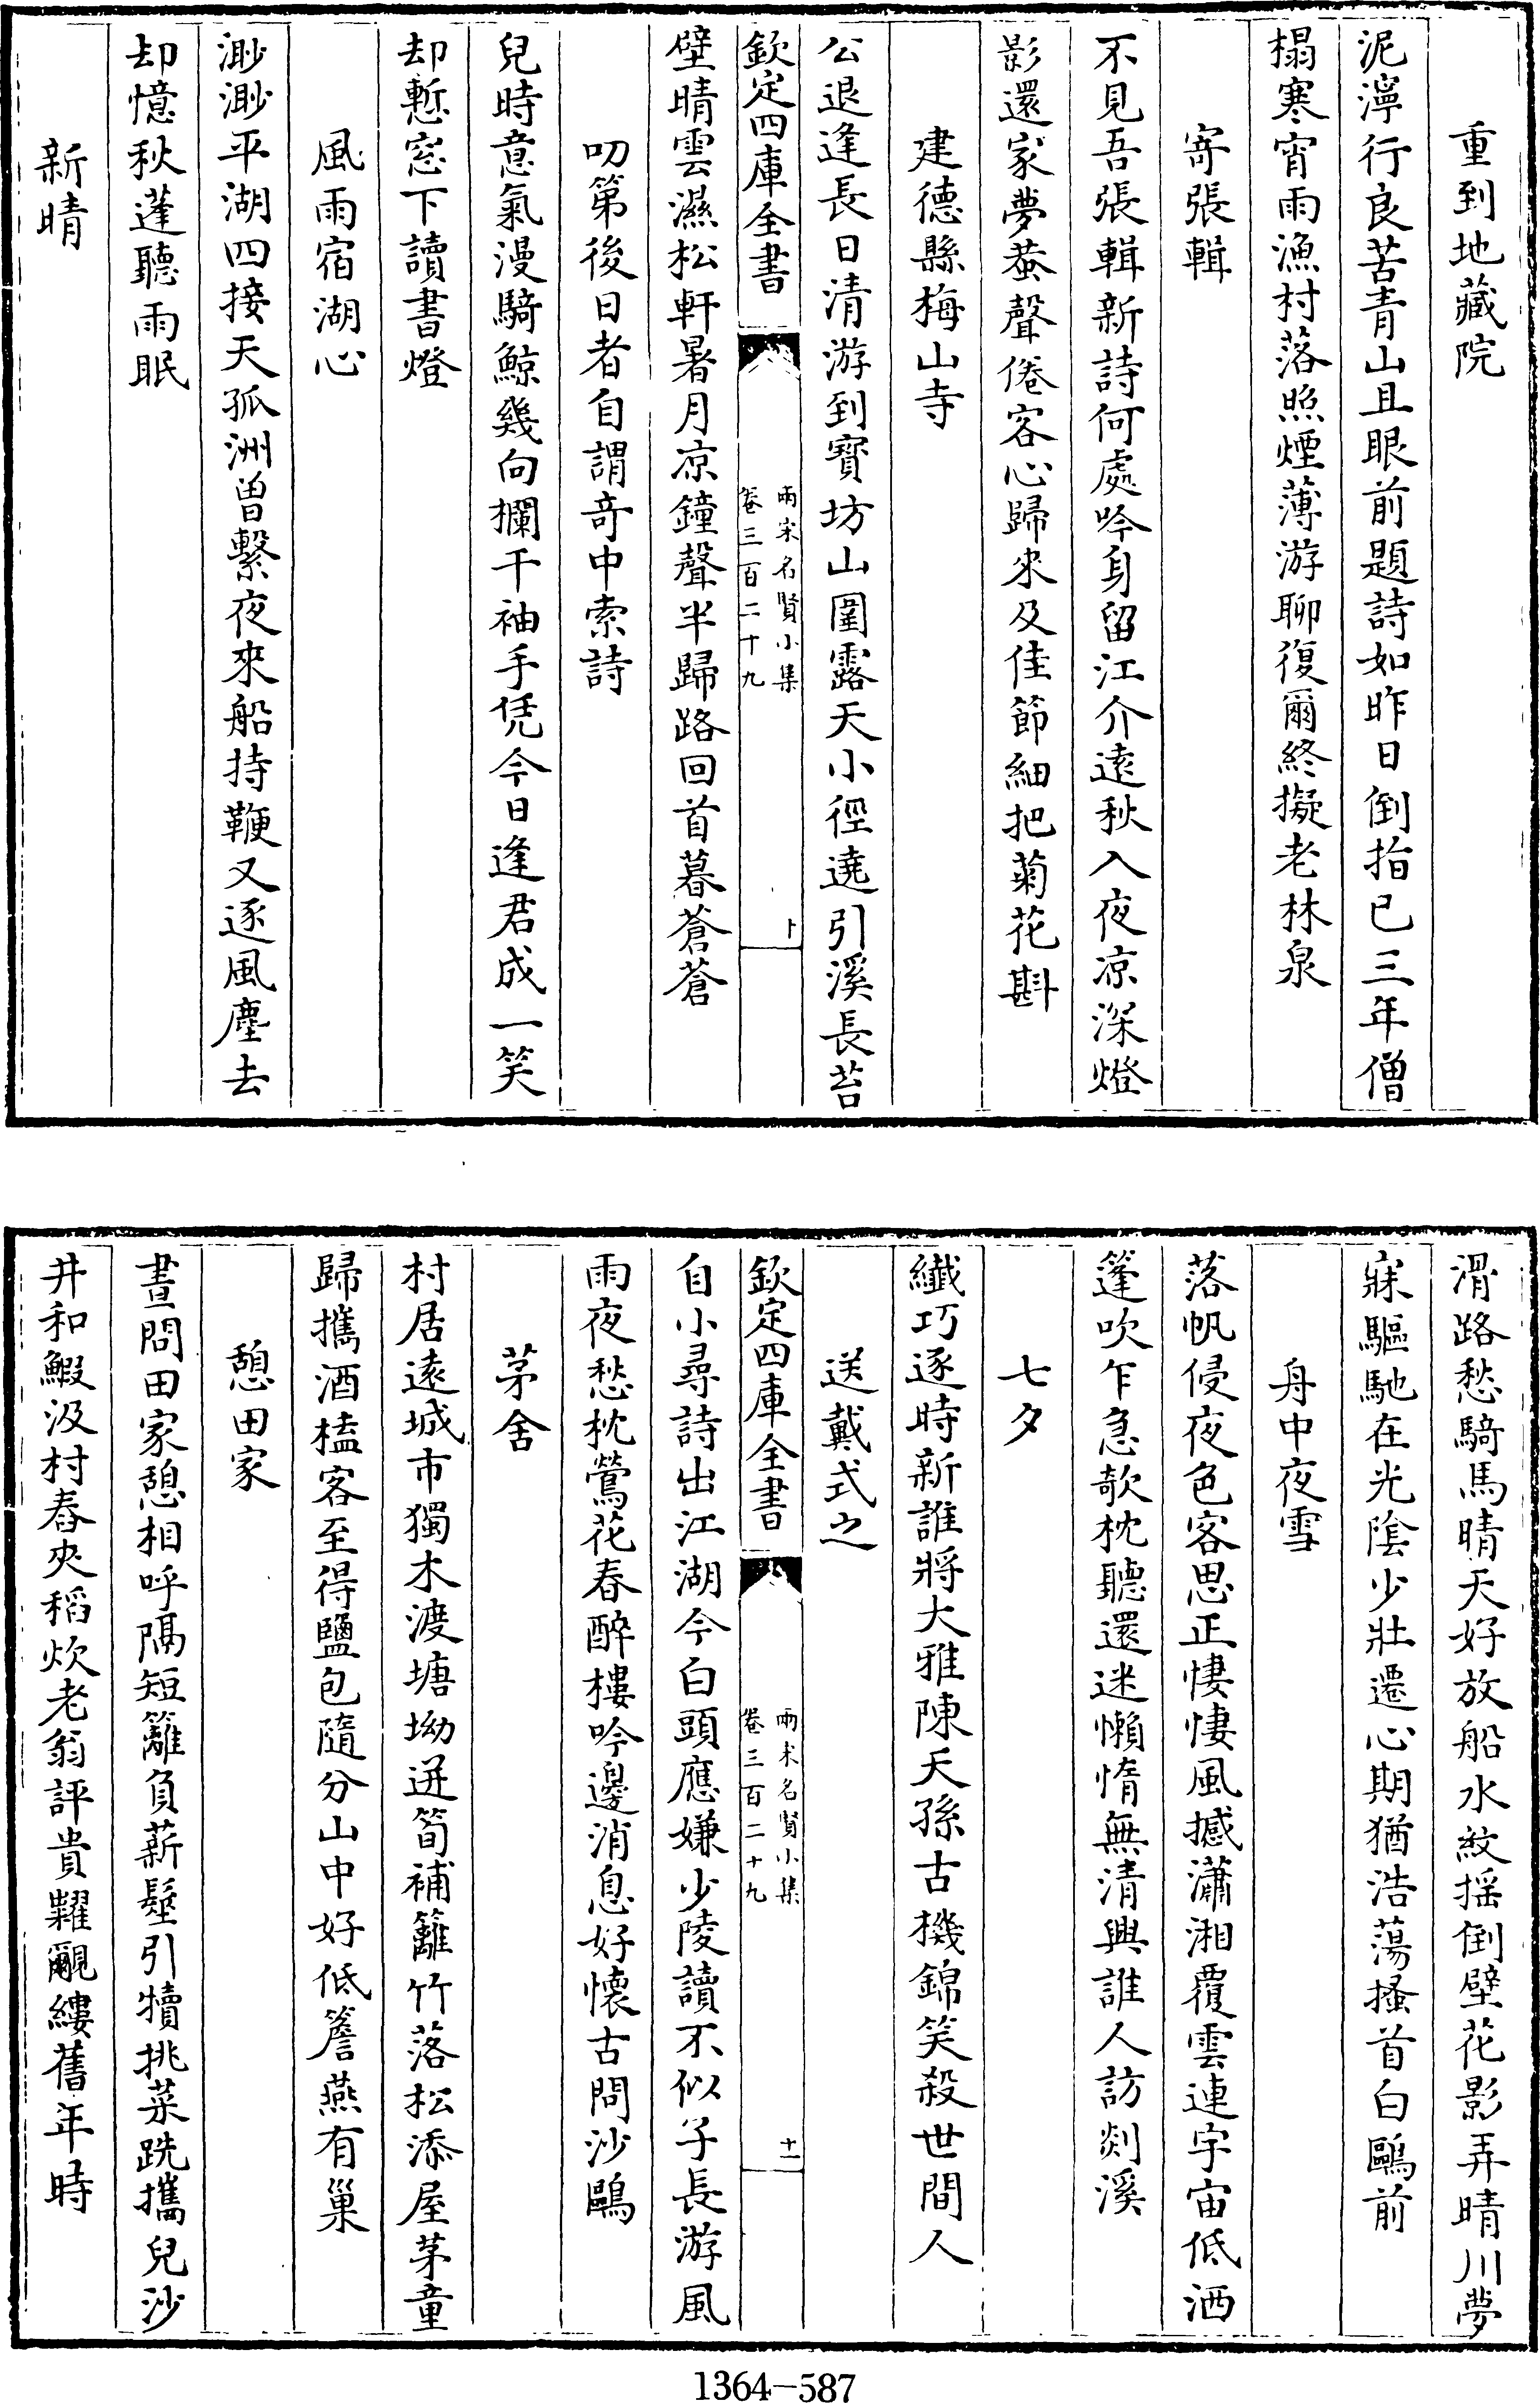 重到地藏院
泥濘行良苦青山且眼前題詩如昨日倒指已三年僧
榻寒宵雨漁村落照煙薄游聊復爾終擬老林泉
寄張輯
不見吾張輯新詩何處吟身留江介遠秋入夜凉深燈
影還家夢蛬聲倦客心歸來及佳節細把菊花斟
建德縣梅山寺
公退逢長日清游到寳坊山圍露天小徑遶引溪長苔
欽定四庫全書
兩宋名賢小集
卷三百二十九
十
壁晴雲濕松軒暑月凉鐘聲半歸路回首暮蒼蒼
叨第後日者自謂奇中索詩
兒時意氣漫騎鯨幾向欄干袖手凭今日逢君成一笑
却慙窓下讀書燈
風雨宿湖心
渺渺平湖四接天孤洲曽繫夜來船持鞭又逐風塵去
却憶秋蓬聽雨眠
新晴
滑路愁騎馬晴天好放船水紋揺倒壁花影弄晴川夢
寐驅馳在光隂少壯遷心期猶浩蕩搔首白鷗前
舟中夜雪
落帆侵夜色客思正悽悽風撼瀟湘覆雲連宇宙低洒
篷吹乍急欹枕聽還迷懶惰無清興誰人訪剡溪
七夕
纎巧逐時新誰將大雅陳天孫古機錦笑殺世間人
送戴式之
欽定四庫全書
兩宋名賢小集
卷三百二十九
十一
自小尋詩出江湖今白頭應嫌少陵讀不似子長游風
雨夜愁枕鶯花春醉樓吟邊消息好懷古問沙鷗
茅舍
村居遠城市獨木渡塘坳迸筍補籬竹落松添屋茅童
歸攜酒榼客至得鹽包隨分山中好低簷燕有巢
憩田家
晝問田家憩相呼隔短籬負薪髽引犢挑菜跣攜兒沙
井和鰕汲村舂夾稻炊老翁評貴糶覼縷舊年時
1364-587